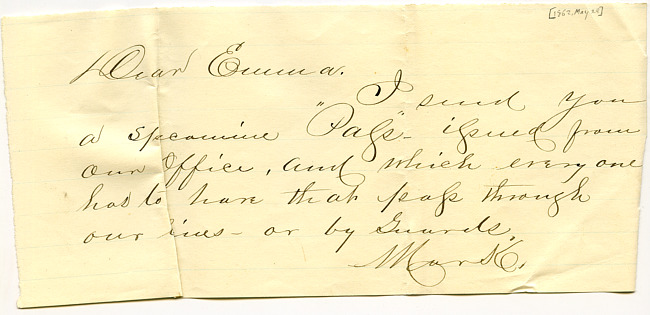 [1862, May 26]
Dear Emma.
I send you
a specomine "Pass"- issued from
our Office, and which every one
has to have that pass through
our lines - or by Guards.
Mark.